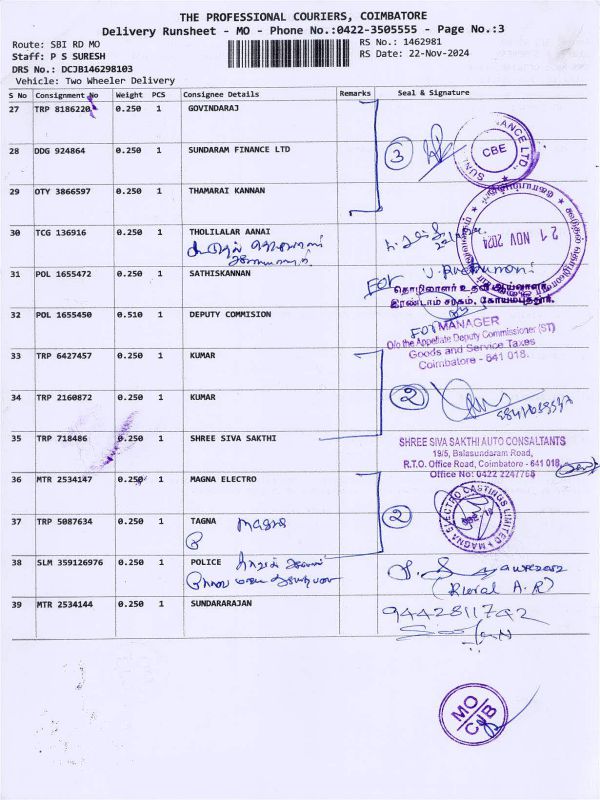 THE PROFESSIONAL COURIERS, COIMBATORE
Delivery Runsheet - MO - Phone No.:0422-3505555 - Page No.:3
Route: SBI RD MO
RS No.: 1462981
Staff: P S SURESH
RS Date: 22-Nov-2024
DRS No.: DCJB146298103
Vehicle: Two Wheeler Delivery
S No Consignment No Weight PCS Consignee Details Remarks Seal & Signature
27 TRP 8186220 0.250 1 GOVINDARAJ
28 DDG 924864 0.250 1 SUNDARAM FINANCE LTD
3
CBE
29 OTY 3866597 0.250 1 THAMARAI KANNAN
30 TCG 136916 0.250 1 THOLILALAR AANAI
21 NOV 2024
31 POL 1655472 0.250 1 SATHISKANNAN
For
தொழிலாளர் உதவி ஆய்வாளர்,
இரண்டாம் சரகம், கோயம்புத்தூர்.
32 POL 1655450 0.510 1 DEPUTY COMMISION
For MANAGER
O/o the Appellate Deputy Commissioner (ST)
Goods and Service Taxes
Coimbatore - 641 018.
33 TRP 6427457 0.250 1 KUMAR
34 TRP 2160872 0.250 1 KUMAR
2
35 TRP 718486 0.250 1 SHREE SIVA SAKTHI
SHREE SIVA SAKTHI AUTO CONSALTANTS
19/5, Balasundaram Road,
R.T.O. Office Road, Coimbatore - 641 018.
Office No: 0422 2247768
36 MTR 2534147 0.250 1 MAGNA ELECTRO
MAGNA ELECTRO CASTINGS LIMITED
37 TRP 5087634 0.250 1 TAGNA
Magna
2
38 SLM 359126976 0.250 1 POLICE
39 MTR 2534144 0.250 1 SUNDARARAJAN
9442811742
MO
CJB